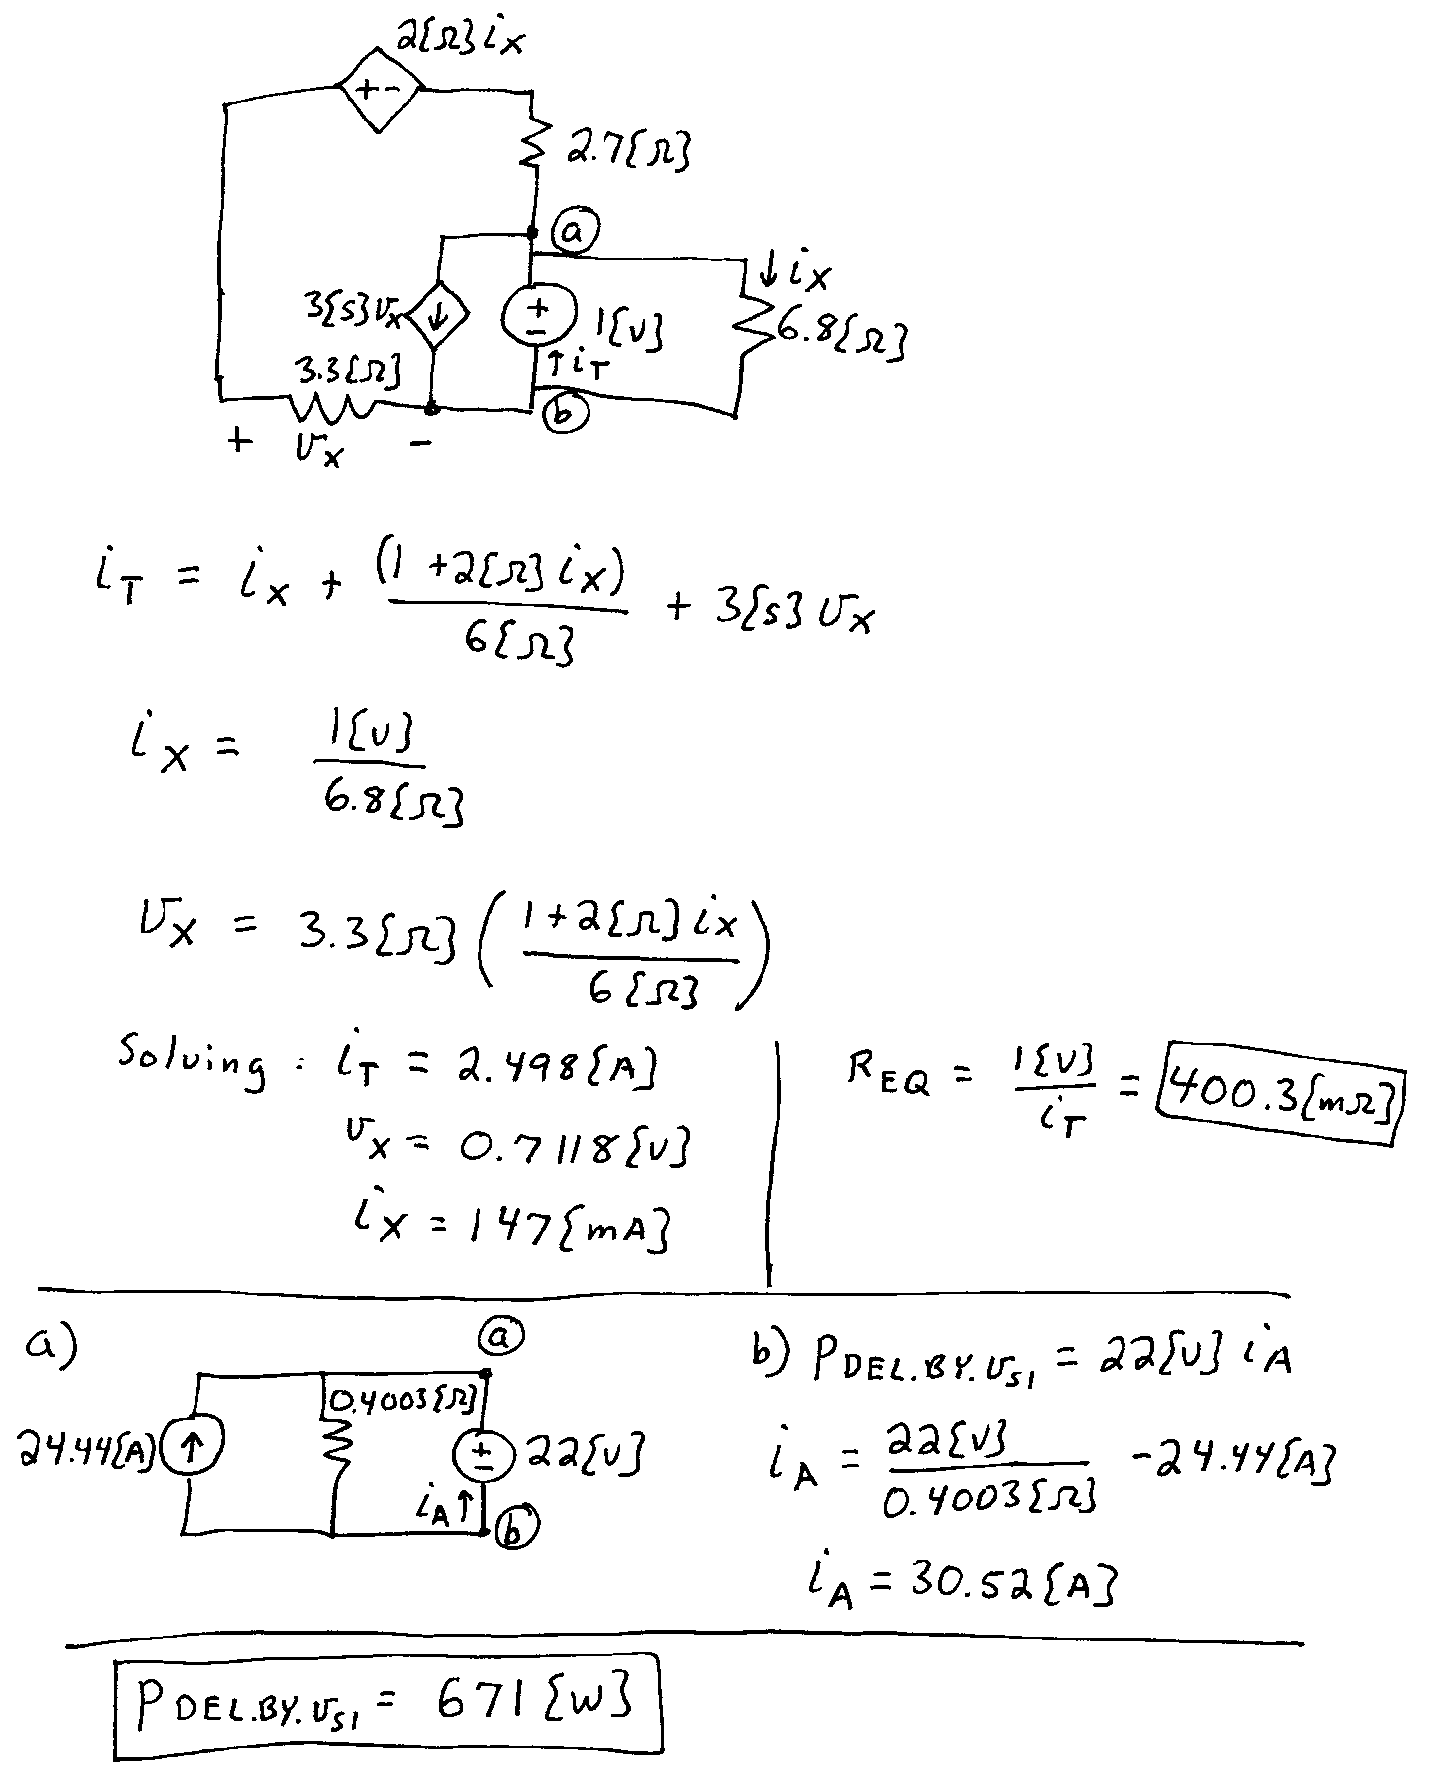 2{Ω} iX
+ -
2.7{Ω}
a
iX
3{S}vX
+
-
1{V}
6.8{Ω}
3.3{Ω}
iT
b
+ vX -
iT = iX + (1 + 2{Ω} iX) / 6{Ω} + 3{S} vX
iX = 1{V} / 6.8{Ω}
vX = 3.3{Ω} ( 1 + 2{Ω} iX / 6{Ω} )
Solving : iT = 2.498{A}
vX = 0.7118{V}
iX = 147{mA}
REQ = 1{V} / iT = 400.3{mΩ}
a)
a
0.4003{Ω}
24.44{A}
+
-
22{V}
iA
b
b) PDEL.BY.vS1 = 22{V} iA
iA = 22{V} / 0.4003{Ω} - 24.44{A}
iA = 30.52{A}
PDEL.BY.vS1 = 671{W}